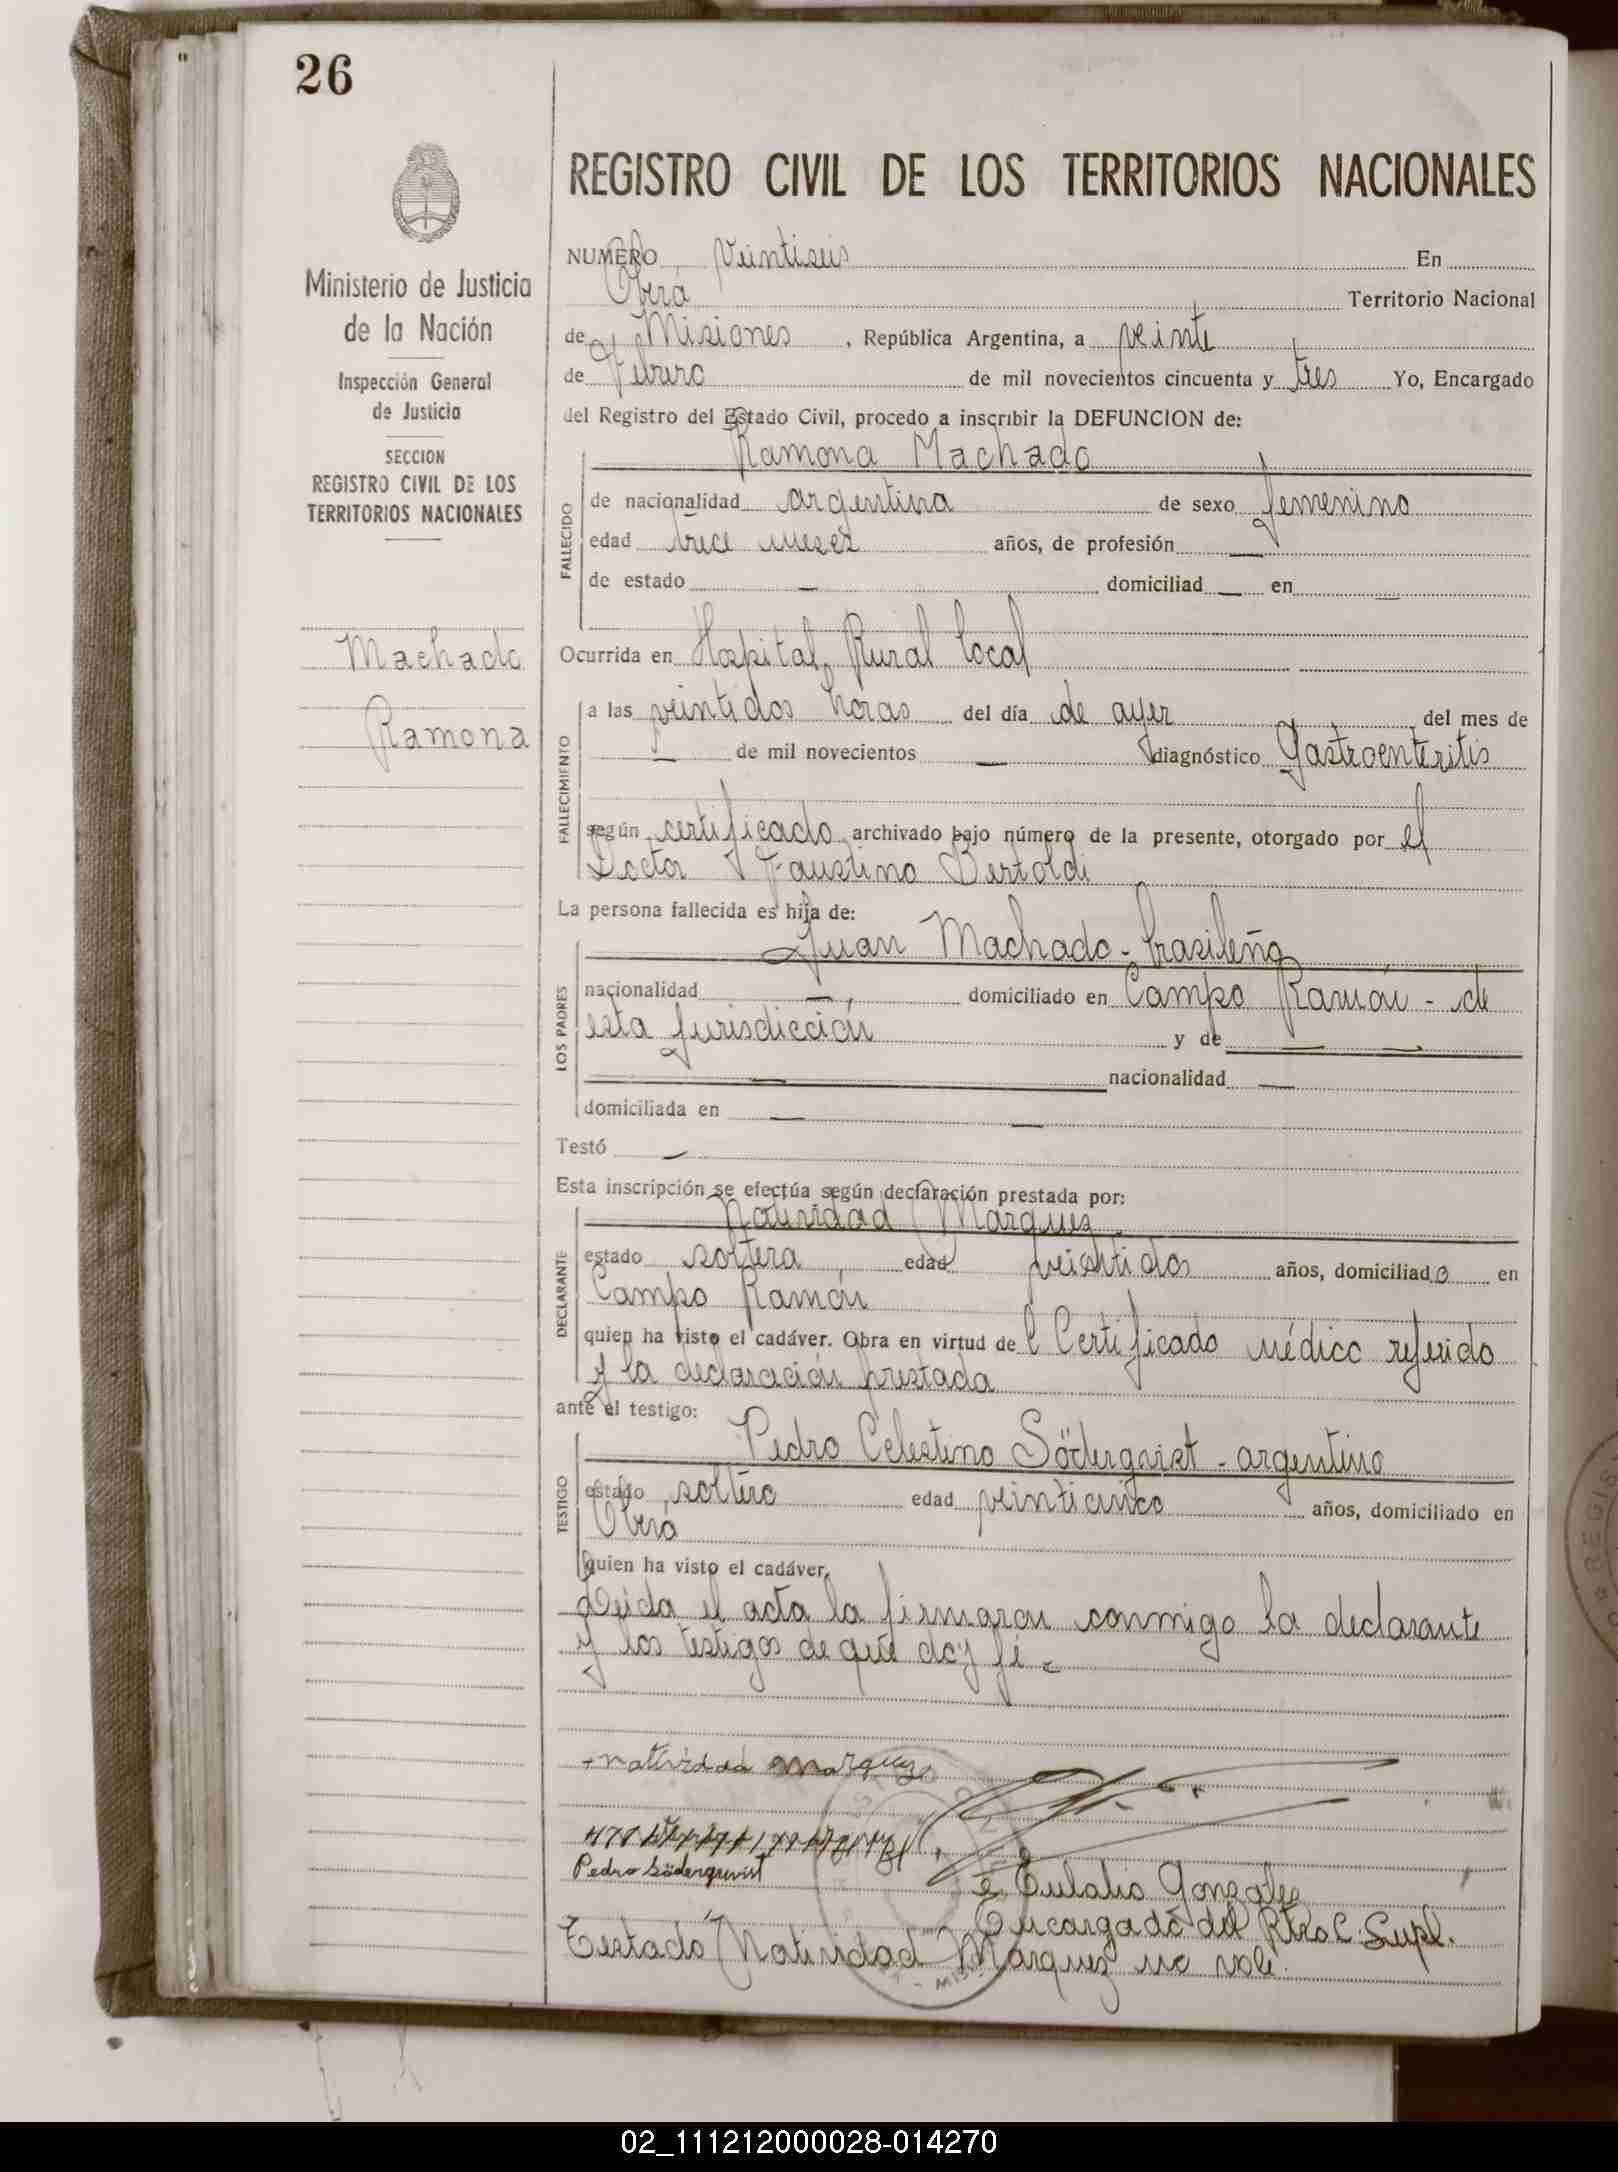 26
REGISTRO CIVIL DE LOS TERRITORIOS NACIONALES
Ministerio de Justicia
de la Nación
Inspección General
de Justicia
SECCION
REGISTRO CIVIL DE LOS
TERRITORIOS NACIONALES
Machado
Ramona
NUMERO Veintiseis En
Oberá Territorio Nacional
de Misiones, República Argentina, a veinte
de Febrero de mil novecientos cincuenta y tres Yo, Encargado
del Registro del Estado Civil, procedo a inscribir la DEFUNCION de:
Ramona Machado
FALLECIDO
de nacionalidad argentina de sexo femenino
edad trece meses años, de profesión —
de estado — domiciliad — en —
Ocurrida en Hospital Rural local
FALLECIMIENTO
a las veintidos horas del día de ayer del mes de
— de mil novecientos — diagnóstico Gastroenteritis
según certificado archivado bajo número de la presente, otorgado por el
Doctor Faustino Bertoldi
La persona fallecida es hija de:
LOS PADRES
Juan Machado - brasileño
nacionalidad — domiciliado en Campo Ramón - de
esta jurisdicción y de — —
— nacionalidad —
domiciliada en — —
Testó —
Esta inscripción se efectúa según declaración prestada por:
DECLARANTE
Natividad Marquez
estado soltera, edad veintidos años, domiciliado en
Campo Ramón
quien ha visto el cadáver. Obra en virtud de l Certificado médico referido
y la declaración prestada
ante el testigo:
TESTIGO
Pedro Celestino Söderqvist - argentino
estado soltero edad veinticinco años, domiciliado en
Oberá
quien ha visto el cadáver.
Leida el acta la firmaron conmigo la declarante
y los testigos de que doy fé =
+ natividad marquez
Pedro Söderqvist
Eulalio Gonzalez
Encargado del Rtro C. Supl.
Testado "Natividad Marquez" no vale.
02_111212000028-014270